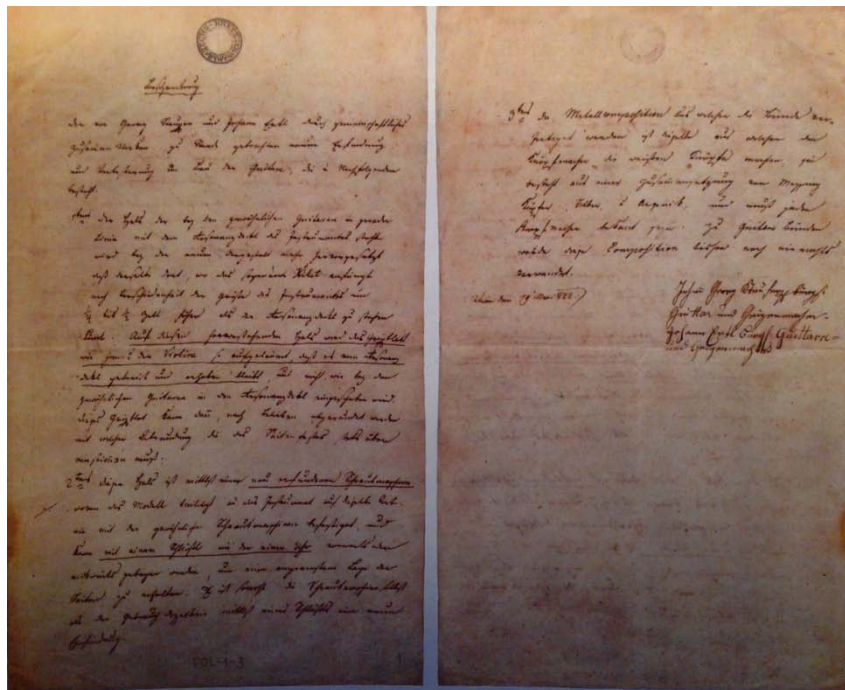 Beschreibung
der von Georg Staufer und Johann Ertl durch gemeinschaftliches
Zusammenwirken zu Stande gebrachten neuen Erfindung
und Verbesserung im Bau der Guitare, die in Nachfolgenden
besteht.
1tens der Hals der bey den gewöhnlichen Guitaren in gerader
Linie mit dem Resonanzdeckel des Instrumentes steht
wird bey den neuen dergestalt
daß derselbe dort, wo das Griffblatt anfängt
nach Verschiedenheit der Größe des Instrumentes um
bis Zoll höher als der Resonanzdeckel zu stehen
kömt. Auf diesen hervorstehenden Hals wird das Griffblatt
wie jenes der Violine so aufgeleimt, daß es vom Resonanz-
deckel getrennt und erhoben bleibt und nicht wie bey den
gewöhnlichen Guitaren in den Resonanzdeckel eingeschoben wird.
dieses Griffblatt kann dan, nach Belieben abgerundet werden
mit welcher Abrundung die des Saitenfestes, stets über-
einstimmen muß.
2tens dieser Hals ist mittelst einer neu erfundenen Schraubmaschine
wovon das Modell beiliegt an das Instrument
mit der gewöhnlichen Schraubmaschine befestiget, und
kann mit einem Schlüssel wie der einer Uhr vorwärts oder
rückwärts gebogen werden, um eine angenehme Lage der
Saiten zu erhalten. Es ist sowohl die Schraubmaschine selbst
als der Gebrauch derselben mittelst eines Schlüssels eine neue
Erfindung.
3tens die Metallcomposition aus welcher die Bünde ver-
fertiget werden ist dieselbe aus welcher die
Knöpfmacher die weißen Knöpfe machen, sie
besteht aus einer Zusammensetzung von Messing
Kupfer, Silber, & Arsenik, und muß jedem
Knopfmacher bekant seyn. Zu Guitare Bünde
wurde diese Composition bisher noch niemahls
verwendet.
Wien den 822
Johan Georg Staufer
Guittar und Geigenmacher.
Johann Ertl Guittarr-
und Geigenmacher
POL-1-3